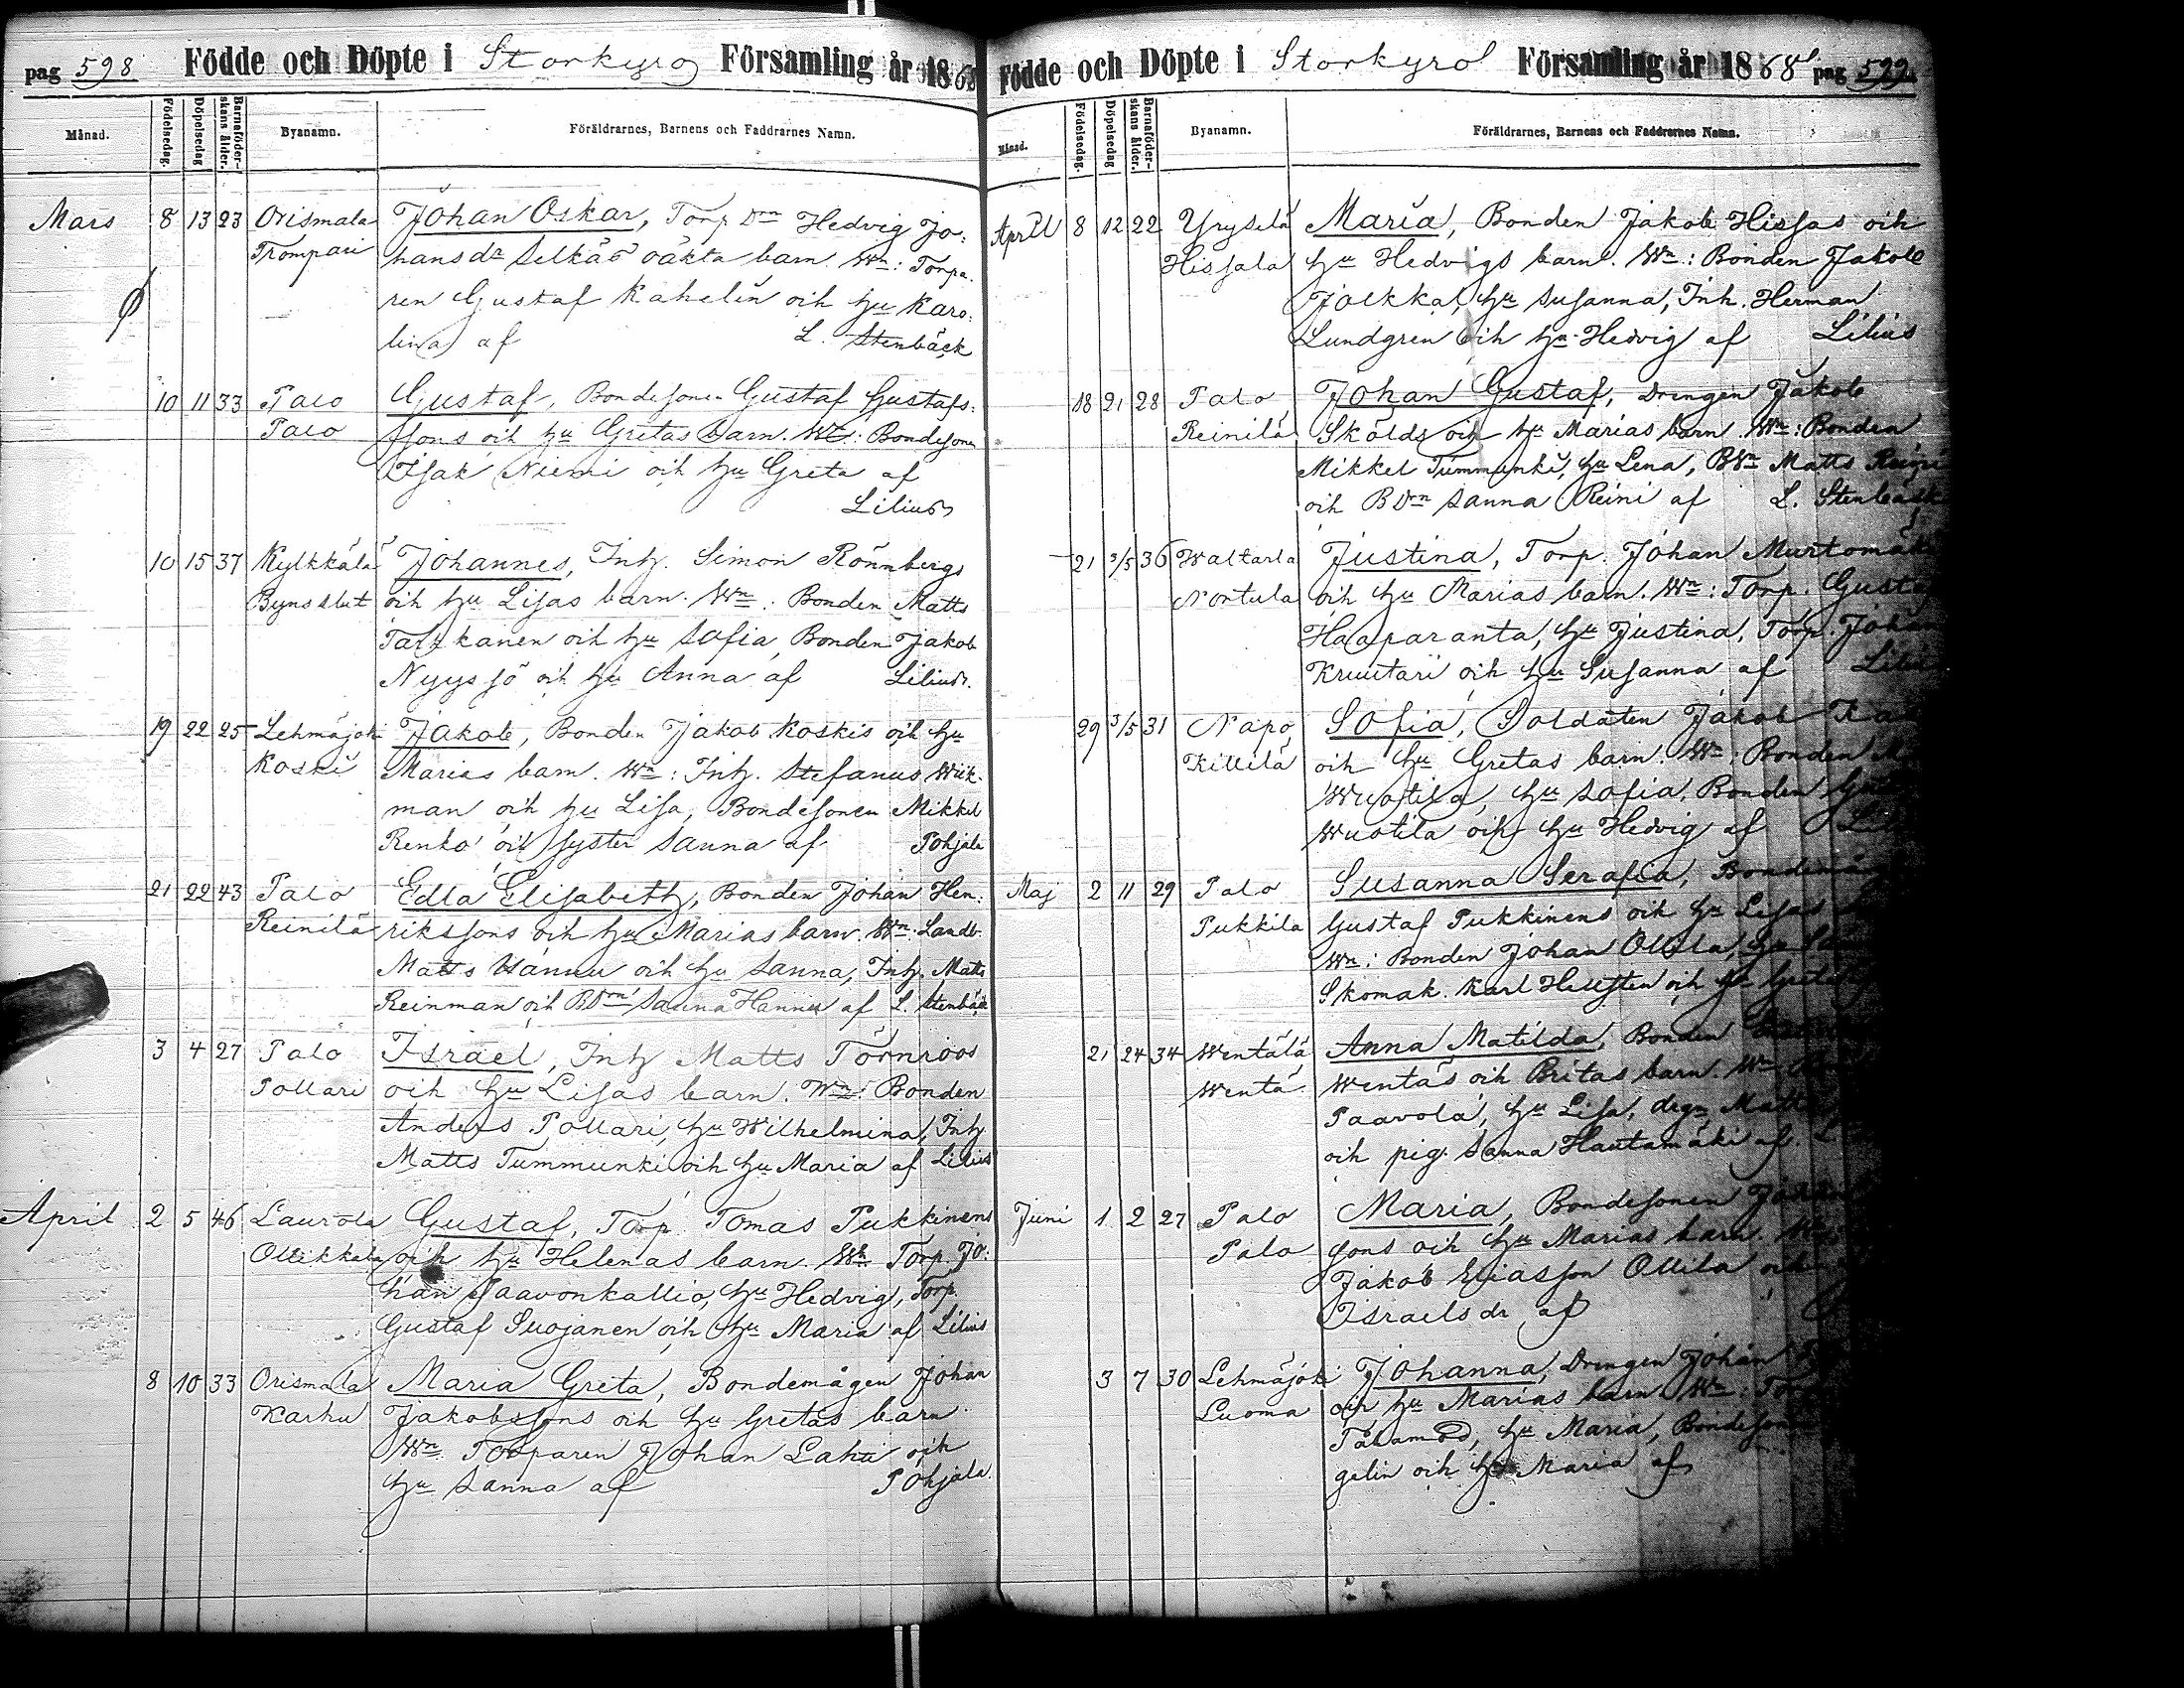 pag 598 Födde och Döpte i Storkyro Församling år 1868
Månad. Födelsedag. Döpelsedag Barnaföderskans ålder. Byanamn. Föräldrarnes, Barnens och Faddrarnes Namn.
Mars 8 13 23 Orismala Johan Oskar, Torp Dn Hedvig Jo:
Trompari hansdr Selkäs oäkta barn. Wn: Torpa.
ren Gustaf Kahelin och hu Karo:
lina af L. Stenbäck
10 11 33 Palo Gustaf, Bondesonen Gustaf Gustafs:
Palo sons och hu Gretas barn. Wn: Bondesonen
Isak Niemi och hu Greta af
Lilius
10 15 37 Kylkkälä Johannes, Inh. Simon Rönnbergs
Byns slut och hu Lisas barn. Wn: Bonden Matts
Tarkkanen och hu Sofia, Bonden Jakob
Nyyssö och hu Anna af Lilius.
19 22 25 Lehmäjoki Jakob, Bonden Jakob Koskis och hu
Koski Marias barn. Wn: Inh. Stefanus Wik-
man och hu Lisa, Bondesonen Mikkel
Renko och syster Sanna af Pohjala
21 22 43 Palo Edla Elisabeth, Bonden Johan Hen:
Reinilä rikssons och hu Marias barn. Wn: Landb.
Matts Hannu och hu Sanna, Inh. Matts
Reinman och BDrn Sanna Hannu af L. Stenbäck
3 4 27 Palo Israel, Inh Matts Törnroos
Pollari och hu Lisas barn. Wn: Bonden
Anders Pollari, hu Wilhelmina, Inh
Matts Tummunki och hu Maria af Lilius
April 2 5 46 Laurola Gustaf, Torp. Tomas Pukkinens
Ollikkala och hu Helenas barn. Wn Torp. Jo:
han Paavonkallio, hu Hedvig, Torp.
Gustaf Suojanen och hu Maria af Lilius
8 10 33 Orismala Maria Greta, Bondemågen Johan
Karhu Jakobssons och hu Gretas barn
Wn. Torparen Johan Laha och
hu Sanna af Pohjala.
Födde och Döpte i Storkyro Församling år 1868 pag 599
Månad. Födelsedag. Döpelsedag Barnaföderskans ålder. Byanamn. Föräldrarnes, Barnens och Faddrarnes Namn.
April 8 12 22 Yryselä Maria, Bonden Jakob Hissas och
Hissala hu Hedvigs barn. Wn: Bonden Jakob
Jolkka, hu Susanna, Inh. Herman
Lundgren och hu Hedvig af Lilius
18 21 28 Palo Johan Gustaf, Drengen Jakob
Reinilä Skölds och hu Marias barn. Wn: Bonden
Mikkel Tummunki, hu Lena, BWn Matts
och BDrn Sanna Reini af L. Stenbäck
21 3/5 36 Waltarla Justina, Torp. Johan Murtomäki
Nortula och hu Marias barn. Wn: Torp. Gustaf
Haaparanta, hu Justina, Torp. Johan
Kruutari och hu Susanna af
29 3/5 31 Napo Sofia, Soldaten Jakob
Killilä och hu Gretas barn. Wn: Bonden
Wuotila, hu Sofia, Bonden
Wuotila och hu Hedvig af
Maj 2 11 29 Palo Susanna Serafia,
Pukkila Gustaf Pukkinens och hu Lisas
Wn: Bonden Johan Ollila, hu
Skomak. Karl Hellsten och hu Greta
21 24 34 Wentälä Anna Matilda, Bonden
Wentä Wentäs och Britas barn. Wn
Paavola, hu Lisa, drgn Matts
och pig. Sanna Hautamäki af
Juni 1 2 27 Palo Maria, Bondesonen
Palo sons och hu Marias barn.
Jakob Eliasson Ollila
Israelsdr af
3 7 30 Lehmäjoki Johanna, Drengen Johan
Luoma och hu Marias barn Wn:
hu Maria,
gelin och hu Maria af